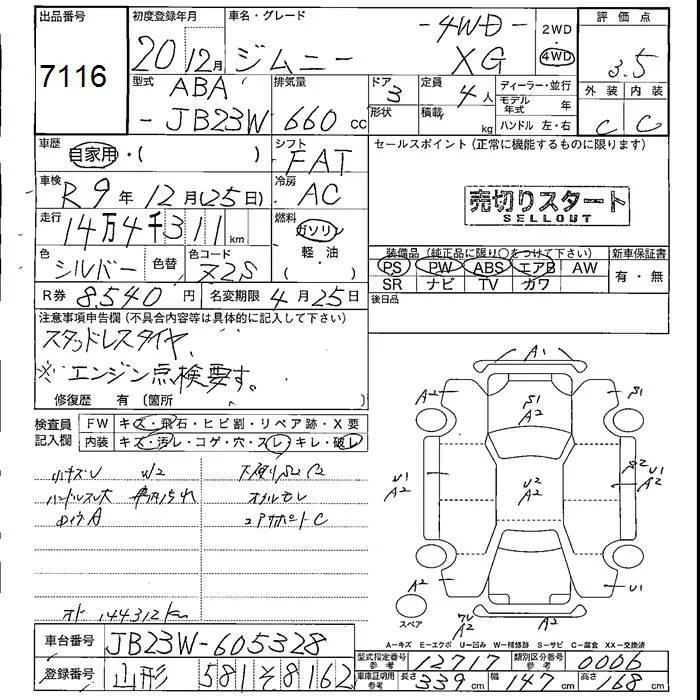 出品番号
7116
初度登録年月
20年12月
車名・グレード
ジムニー -4WD- XG
2WD
4WD
評価点
3.5
外装 内装
C C
型式
ABA
-JB23W
排気量
660 cc
ドア 3
形状
定員 4人
積載 kg
ディーラー・並行
モデル年式 年
ハンドル 左・右
車歴
自家用・( )
シフト
FAT
セールスポイント (正常に機能するものに限ります)
車検
R9年12月(25日)
冷房
AC
売切りスタート
SELLOUT
走行
14万4千311km
燃料
ガソリン
軽・油
色
シルバー
色替
色コード
Z2S
装備品 (純正品に限り○をつけて下さい)
PS PW ABS エアB AW
SR ナビ TV カワ
新車保証書
有・無
R券 8,540円
名変期限 4月25日
後日品
注意事項申告欄 (不具合内容等は具体的に記入して下さい)
スタッドレスタイヤ、
※エンジン点検要す。
修復歴 有 〔箇所 〕
検査員記入欄
FW キズ・飛石・ヒビ割・リペア跡・X要
内装 キズ・汚レ・コゲ・穴・スレ・キレ・破レ
小キズU W2
ハンドルスレ大
144312km
A1
A2 S1 A2 S1
U1 A2 U2 A2 S2 U1 A2
A2 A2 U1
スペア
A−キズ E−エクボ U−凹み W−補修跡 S−サビ C−腐食 XX−交換済
車台番号
JB23W-605328
登録番号
山形 581 そ 8162
型式指定番号 参考
12717
類別区分番号 参考
0006
車庫証明用 参考
長さ 339cm
幅 147cm
高さ 168cm